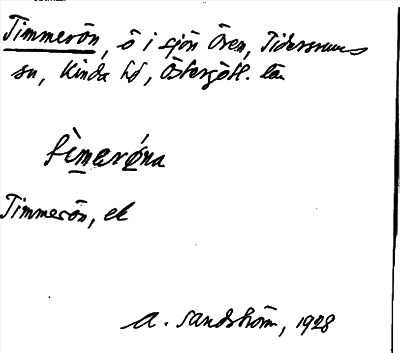 Timmerön, ö i sjön Ören, Tidersrums
sn, Kinda hd, Östergötl. län
tìmerǿna
Timmerön, ek
A. Sandström, 1928